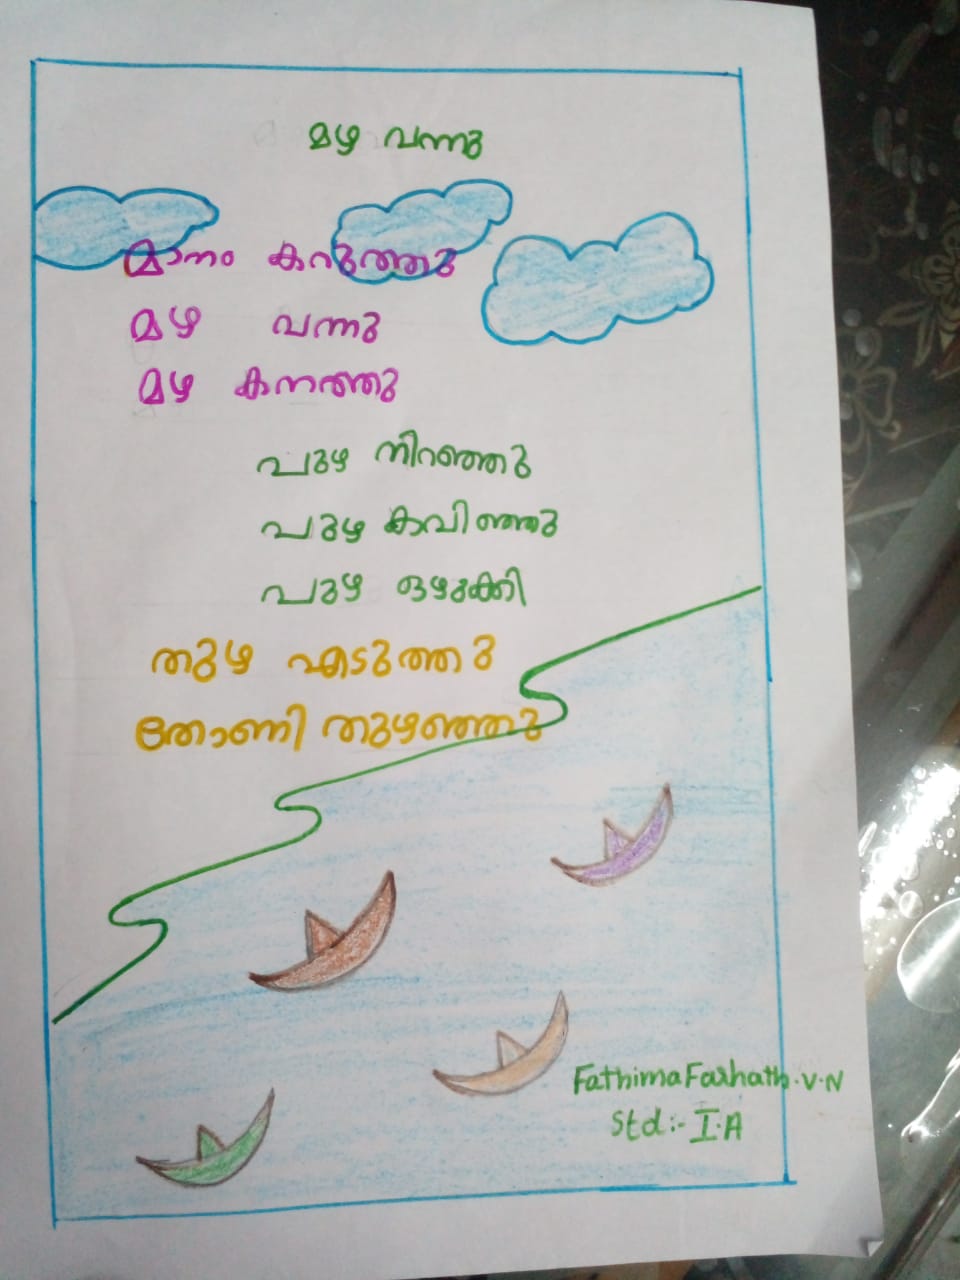 മഴ വന്നു
മാനം കറുത്തു
മഴ വന്നു
മഴ കനത്തു
പുഴ നിറഞ്ഞു
പുഴ കവിഞ്ഞു
പുഴ ഒഴുക്കി
തുഴ എടുത്തു
തോണി തുഴഞ്ഞു
Fathima Farhath.V.N
Std:- I.A